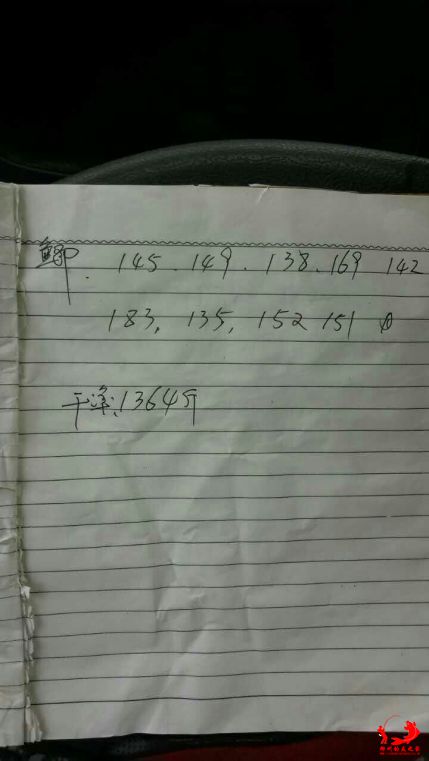 鲫. 145. 149. 138. 169 142
183, 135, 152 151
干净:1364斤